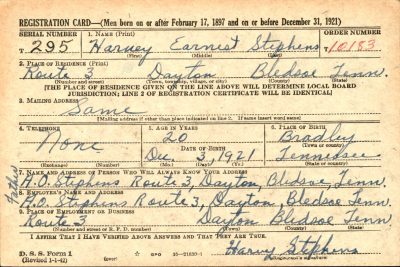 REGISTRATION CARD—(Men born on or after February 17, 1897 and on or before December 31, 1921)
SERIAL NUMBER 1. NAME (Print) ORDER NUMBER
T 295 Harvey Earnest Stephens 10183
(First) (Middle) (Last)
2. PLACE OF RESIDENCE (Print)
Route 3 Dayton Bledsoe Tenn.
(Number and street) (Town, township, village, or city) (County) (State)
[THE PLACE OF RESIDENCE GIVEN ON THE LINE ABOVE WILL DETERMINE LOCAL BOARD
JURISDICTION; LINE 2 OF REGISTRATION CERTIFICATE WILL BE IDENTICAL]
3. MAILING ADDRESS
Same
[Mailing address if other than place indicated on line 2. If same insert word same]
4. TELEPHONE 5. AGE IN YEARS 6. PLACE OF BIRTH
None 20 Bradley
DATE OF BIRTH (Town or county)
Dec. 3, 1921 Tennessee
(Exchange) (Number) (Mo.) (Day) (Yr.) (State or country)
7. NAME AND ADDRESS OF PERSON WHO WILL ALWAYS KNOW YOUR ADDRESS
Father
H.O. Stephens Route 3, Dayton, Bledsoe, Tenn.
8. EMPLOYER'S NAME AND ADDRESS
H.O. Stephens Route 3, Dayton, Bledsoe Tenn.
9. PLACE OF EMPLOYMENT OR BUSINESS
Route 3 Dayton Bledsoe Tenn
(Number and street or R. F. D. number) (Town) (County) (State)
I AFFIRM THAT I HAVE VERIFIED ABOVE ANSWERS AND THAT THEY ARE TRUE.
D. S. S. Form 1 GPO 16—21630-1 Harvy Stephens
(Revised 1-1-42) (Registrant's signature)